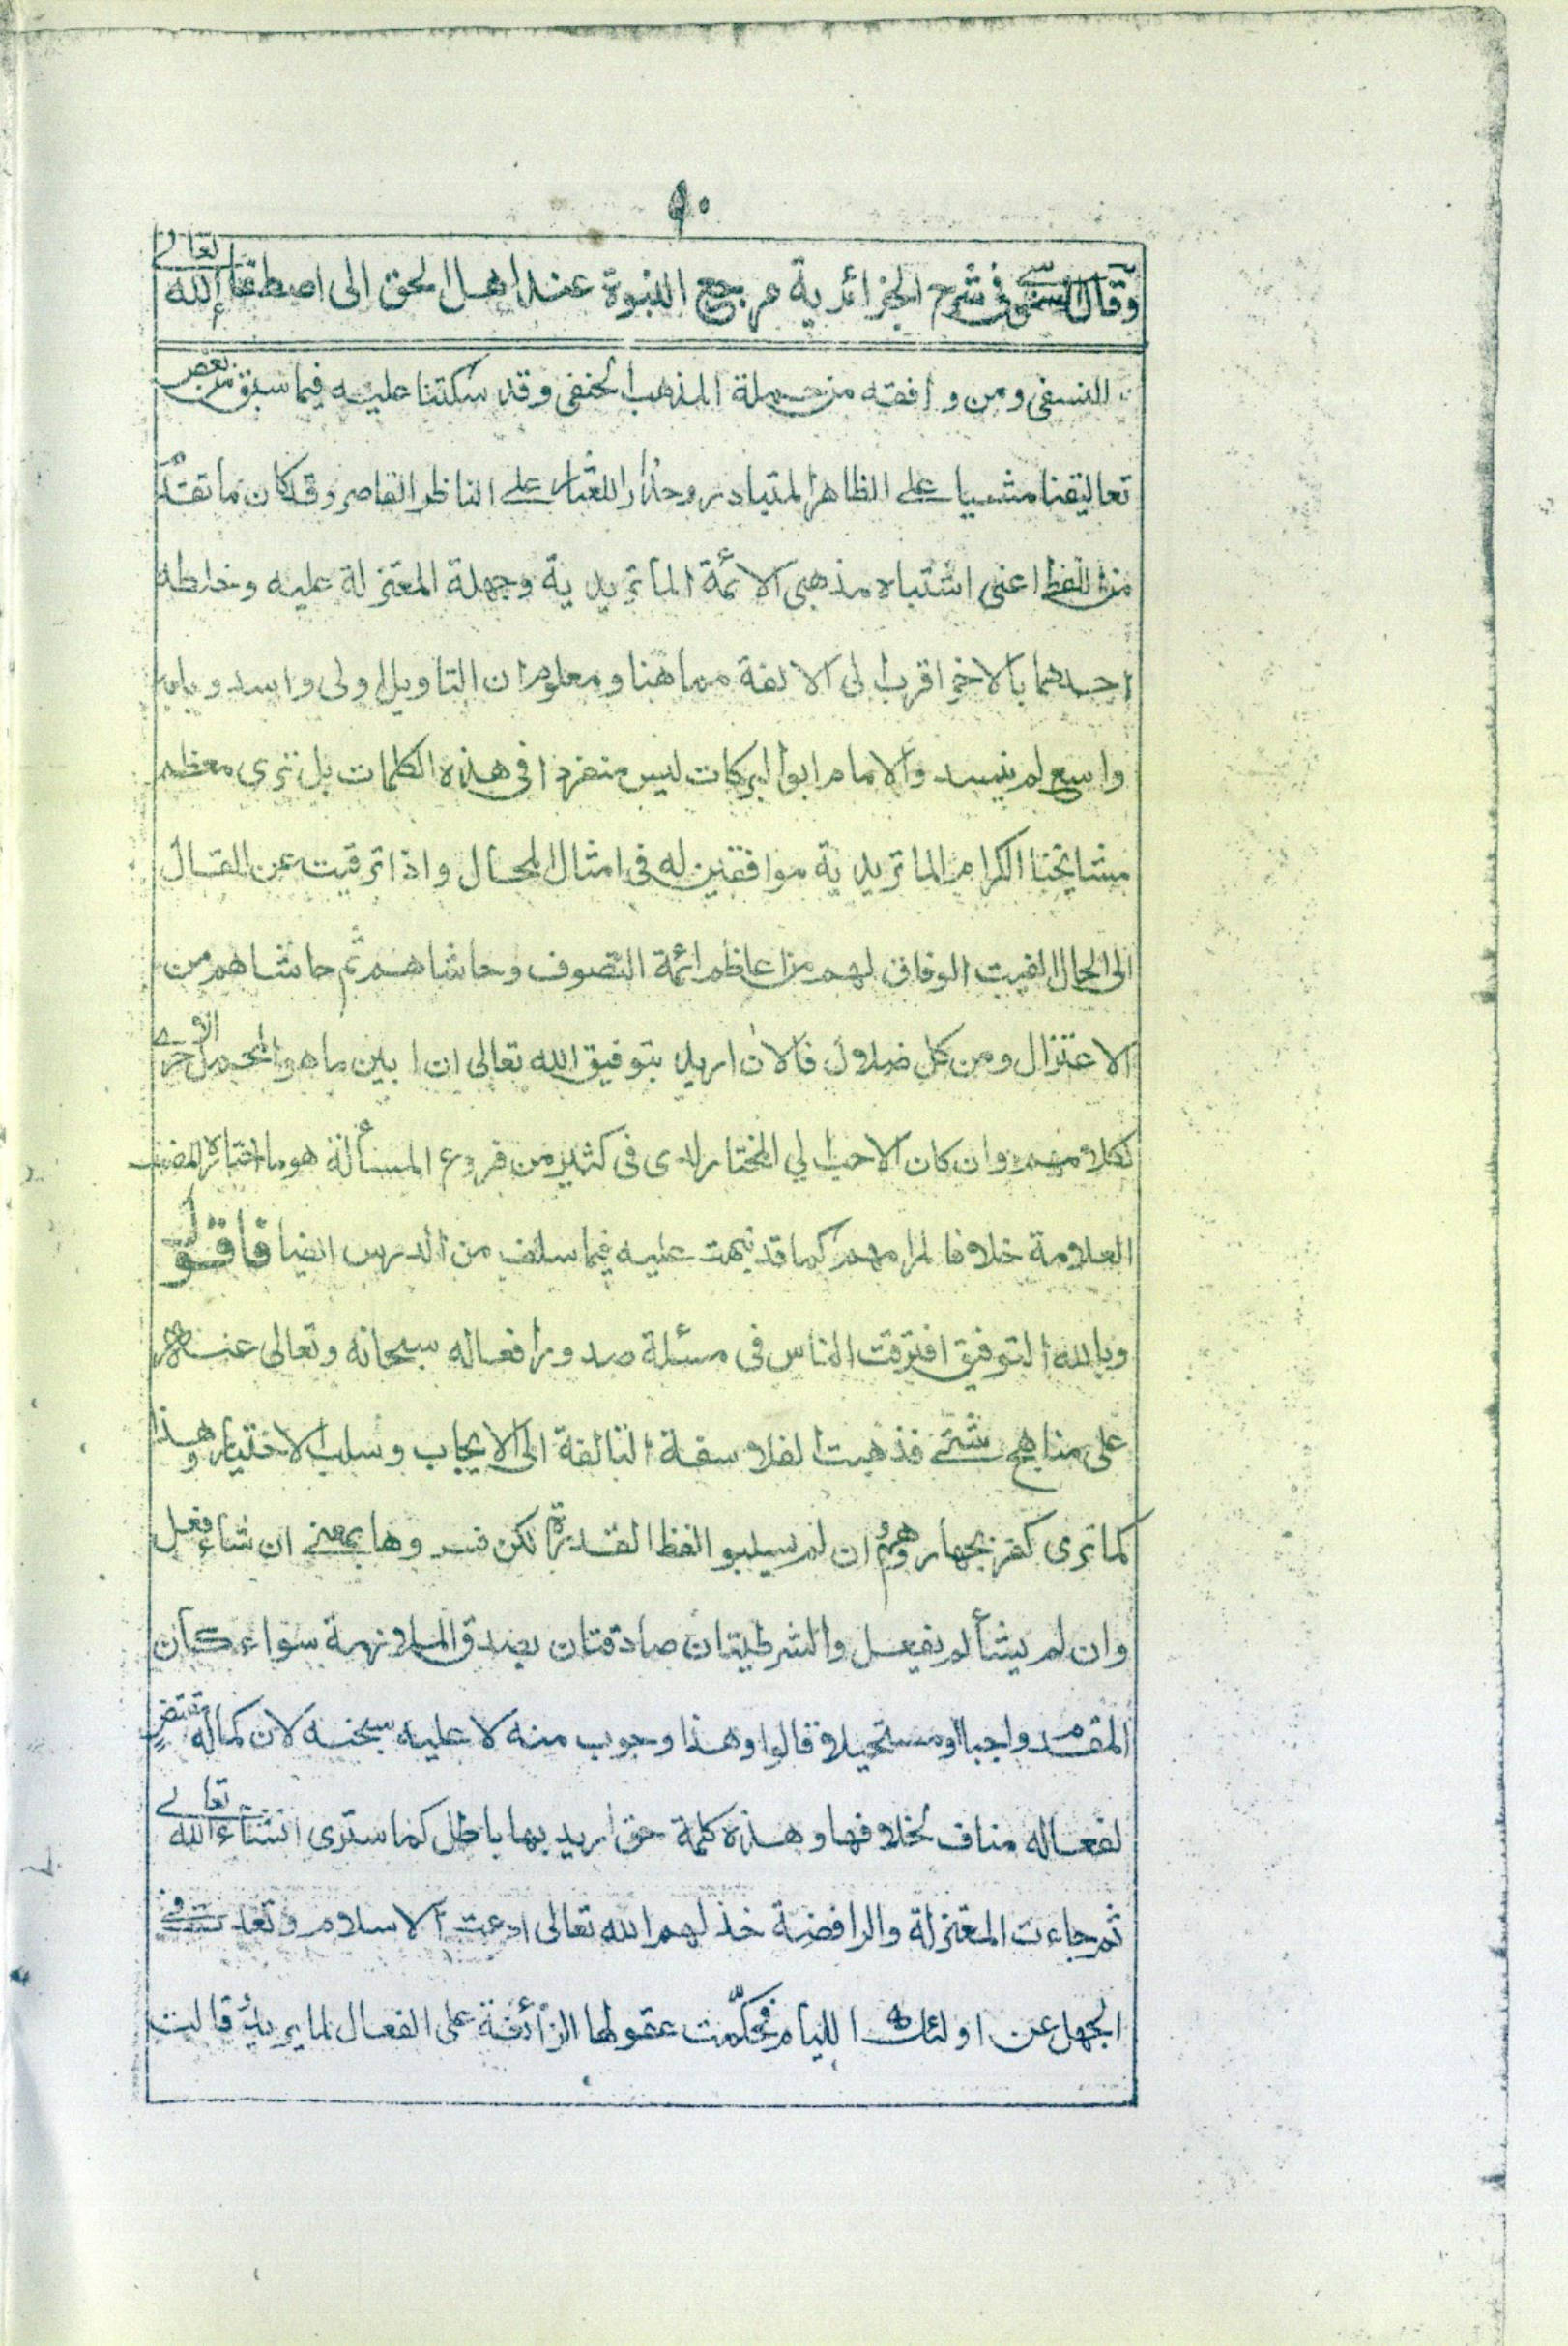 ٩٠
وقال السنوسي في شرح الجزائرية مرجع النبوة عند اهل الحق الى اصطفاء الله تعالى
النسفى ومن وافقه من حملة المذهب الحنفى وقد سكتنا عليه فيما سبق من بعض
تعاليقنا مشيا على الظاهر المتبادر وحذرا على الناظر القاصر وقد كان ما تقدّ
من اللفظ اعنى اشتباه مذهبى الائمة الماتريدية وجهلة المعتزلة عليه وخلطه
احدهما بالاخر اقرب الى الالفة مما هنا ومعلوم ان التاويل اولى واسد وبابه
واسع لم ينسد والامام ابو البركات ليس منفردا فى هذه الكلمات بل نرى معظم
مشايخنا الكرام الماتريدية موافقين له فى امثال المحال واذا ترقيت عن القال
الى الحال الفيت الوفاق لهم من اعاظم ائمة التصوف وحاشاهم ثم حاشاهم من
الاعتزال ومن كل ضلال فالان اريد بتوفيق الله تعالى ان ابين ما هو المحمل الاحرى
لكلامهم وان كان الاحب الي المختار لدى فى كثير من فروع المسألة هو ما اختاره المصنف
العلامة خلافا لمرامهم كما قد نبهت عليه فيما سلف من الدرس ايضا فاقول
وبالله التوفيق افترقت الناس فى مسئلة صدور افعاله سبحانه وتعالى عنه
على مناهج شتى فذهبت الفلاسفة التالفة الى الايجاب وسلب الاختيار وهذا
كما ترى كفر بجهار وهم وان لم يسلبوا لفظ القدرة لكن فسروها بمعنى ان شاء فعل
وان لم يشأ لم يفعل والشرطيتان صادقتان بصدق الملازمة سواء كان
المقدم واجبا او مستحيلا قالوا وهذا وجوب منه لا عليه سبحنه لان كماله مقتضٍ
لفعاله مناف لخلافها وهذه كلمة حق اريد بها باطل كما سترى انشاء الله تعالى
ثم جاءت المعتزلة والرافضة خذلهم الله تعالى ادعت الاسلام وتعدت فى
الجهل عن اولئك اللئام فحكّمت عقولها الزائفة على الفعال لما يريد قالت